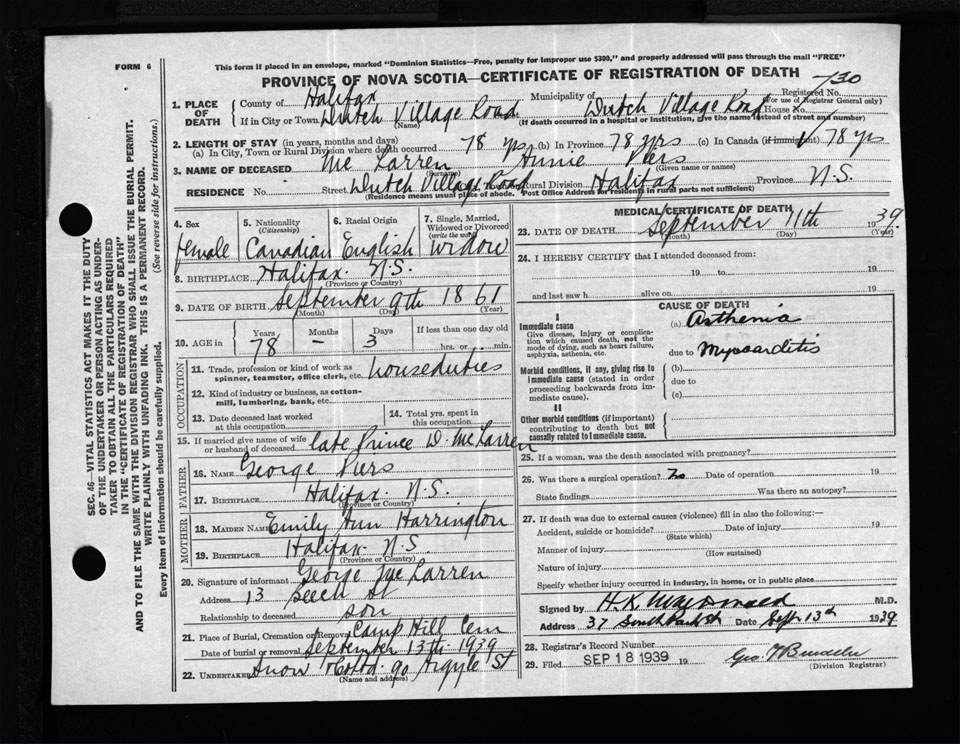 FORM 6
This form if placed in an envelope, marked "Dominion Statistics—Free, penalty for improper use $300," and properly addressed will pass through the mail "FREE"
PROVINCE OF NOVA SCOTIA—CERTIFICATE OF REGISTRATION OF DEATH
730
Registered No.
(For use of Registrar General only)
1. PLACE OF DEATH
County of Halifax Municipality of
If in City or Town Dutch Village Road Dutch Village Road House No.
(Name) (If death occurred in a hospital or institution, give the name instead of street and number)
2. LENGTH OF STAY (in years, months and days)
(a) In City, Town or Rural Division where death occurred 78 yrs (b) In Province 78 yrs (c) In Canada (if immigrant) 78 yrs
3. NAME OF DECEASED Mc Larren Annie Viers
(Surname) (Given name or names)
RESIDENCE No. Street Dutch Village Road Rural Division Halifax Province N.S.
(Residence means usual place of abode. Post Office Address for residents in rural parts not sufficient)
4. Sex female
5. Nationality (Citizenship) Canadian
6. Racial Origin English
7. Single, Married, Widowed or Divorced (write the word) Widow
8. BIRTHPLACE Halifax. N.S.
(Province or Country)
9. DATE OF BIRTH September 9th 1861
(Month) (Day) (Year)
10. AGE in Years 78 Months – Days 3 If less than one day old hrs. or min.
OCCUPATION
11. Trade, profession or kind of work as spinner, teamster, office clerk, etc. houseduties
12. Kind of industry or business, as cotton-mill, lumbering, bank, etc.
13. Date deceased last worked at this occupation
14. Total yrs. spent in this occupation
15. If married give name of wife or husband of deceased late Prince D. Mc Larren
FATHER
16. Name George Viers
17. Birthplace Halifax. N.S.
MOTHER
18. Maiden Name Emily Ann Harrington
19. Birthplace Halifax. N.S.
(Province or Country)
20. Signature of informant George Mc Larren
Address 13 Beech St
Relationship to deceased son
21. Place of Burial, Cremation or Removal Camp Hill Cem
Date of burial or removal September 13th 1939
22. Undertaker Snow & Co Ltd. 90 Argyle St
(Name and address)
MEDICAL CERTIFICATE OF DEATH
23. DATE OF DEATH September 11th 1939.
(Month) (Day) (Year)
24. I HEREBY CERTIFY that I attended deceased from:
19 to 19
and last saw h alive on 19
CAUSE OF DEATH
I
Immediate cause
Give disease, injury or complication which caused death, not the mode of dying, such as heart failure, asphyxia, asthenia, etc.
(a) Asthenia
due to Myocarditis
Morbid conditions, if any, giving rise to immediate cause (stated in order proceeding backwards from immediate cause).
(b)
due to
(c)
II
Other morbid conditions (if important) contributing to death but not causally related to immediate cause.
25. If a woman, was the death associated with pregnancy?
26. Was there a surgical operation? No Date of operation 19
State findings Was there an autopsy?
27. If death was due to external causes (violence) fill in also the following:—
Accident, suicide or homicide? Date of injury 19
(State which)
Manner of injury
(How sustained)
Nature of injury
Specify whether injury occurred in industry, in home, or in public place
Signed by H.K. MacDonald M.D.
Address 37 South Park St Date Sept 13th 1939
28. Registrar's Record Number
29. Filed SEP 18 1939 19
(Division Registrar)
SEC. 46—VITAL STATISTICS ACT MAKES IT THE DUTY
OF THE UNDERTAKER OR PERSON ACTING AS UNDER-
TAKER TO OBTAIN ALL THE PARTICULARS REQUIRED
IN THE "CERTIFICATE OF REGISTRATION OF DEATH"
AND TO FILE THE SAME WITH THE DIVISION REGISTRAR WHO SHALL ISSUE THE BURIAL PERMIT.
WRITE PLAINLY WITH UNFADING INK. THIS IS A PERMANENT RECORD.
Every item of information should be carefully supplied. (See reverse side for instructions.)